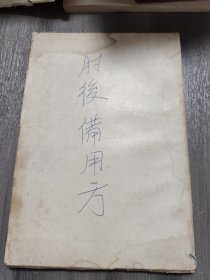 肘後備用方